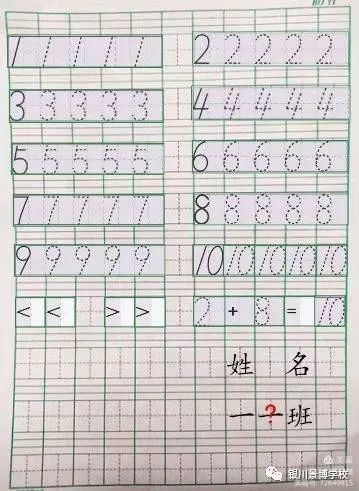 BO YI
1 1 1 1 1 2 2 2 2 2
3 3 3 3 3 4 4 4 4 4
5 5 5 5 5 6 6 6 6 6
7 7 7 7 7 8 8 8 8 8
9 9 9 9 9 10 10 10 10 10
< < > > 2 + 8 = 10
姓 名
一 ? 班
银川景博学校